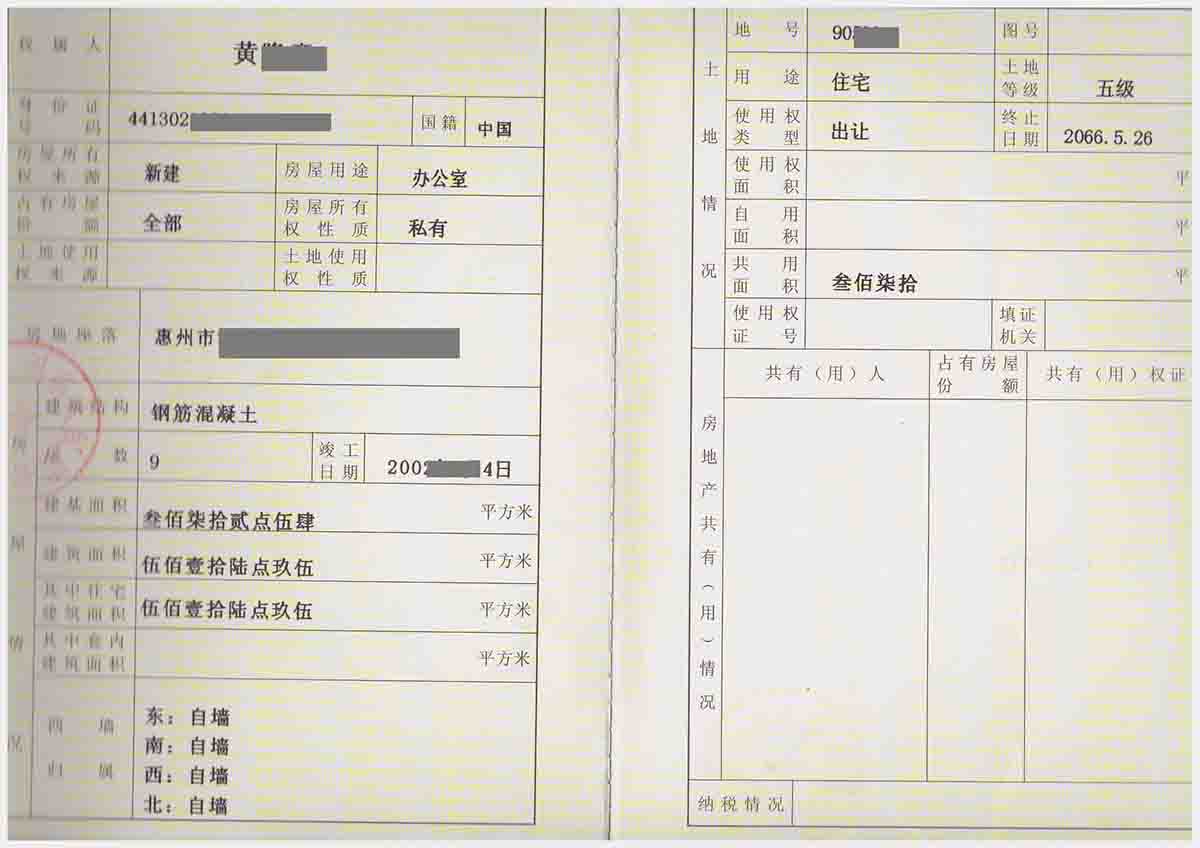 权属人 黄
身份证号码 441302 国籍 中国
房屋所有权来源 新建 房屋用途 办公室
占有房屋份额 全部 房屋所有权性质 私有
土地使用权来源 土地使用权性质
房地座落 惠州市
房屋情况
建筑结构 钢筋混凝土
层数 9 竣工日期 2002 4日
建基面积 叁佰柒拾贰点伍肆 平方米
建筑面积 伍佰壹拾陆点玖伍 平方米
其中住宅建筑面积 伍佰壹拾陆点玖伍 平方米
其中套内建筑面积 平方米
四墙归属
东：自墙
南：自墙
西：自墙
北：自墙
土地情况
地号 90 图号
用途 住宅 土地等级 五级
使用权类型 出让 终止日期 2066.5.26
使用权面积 平
自用面积 平
共用面积 叁佰柒拾 平
使用权证号 填证机关
房地产共有（用）情况
共有（用）人 占有房屋份额 共有（用）权证
纳税情况